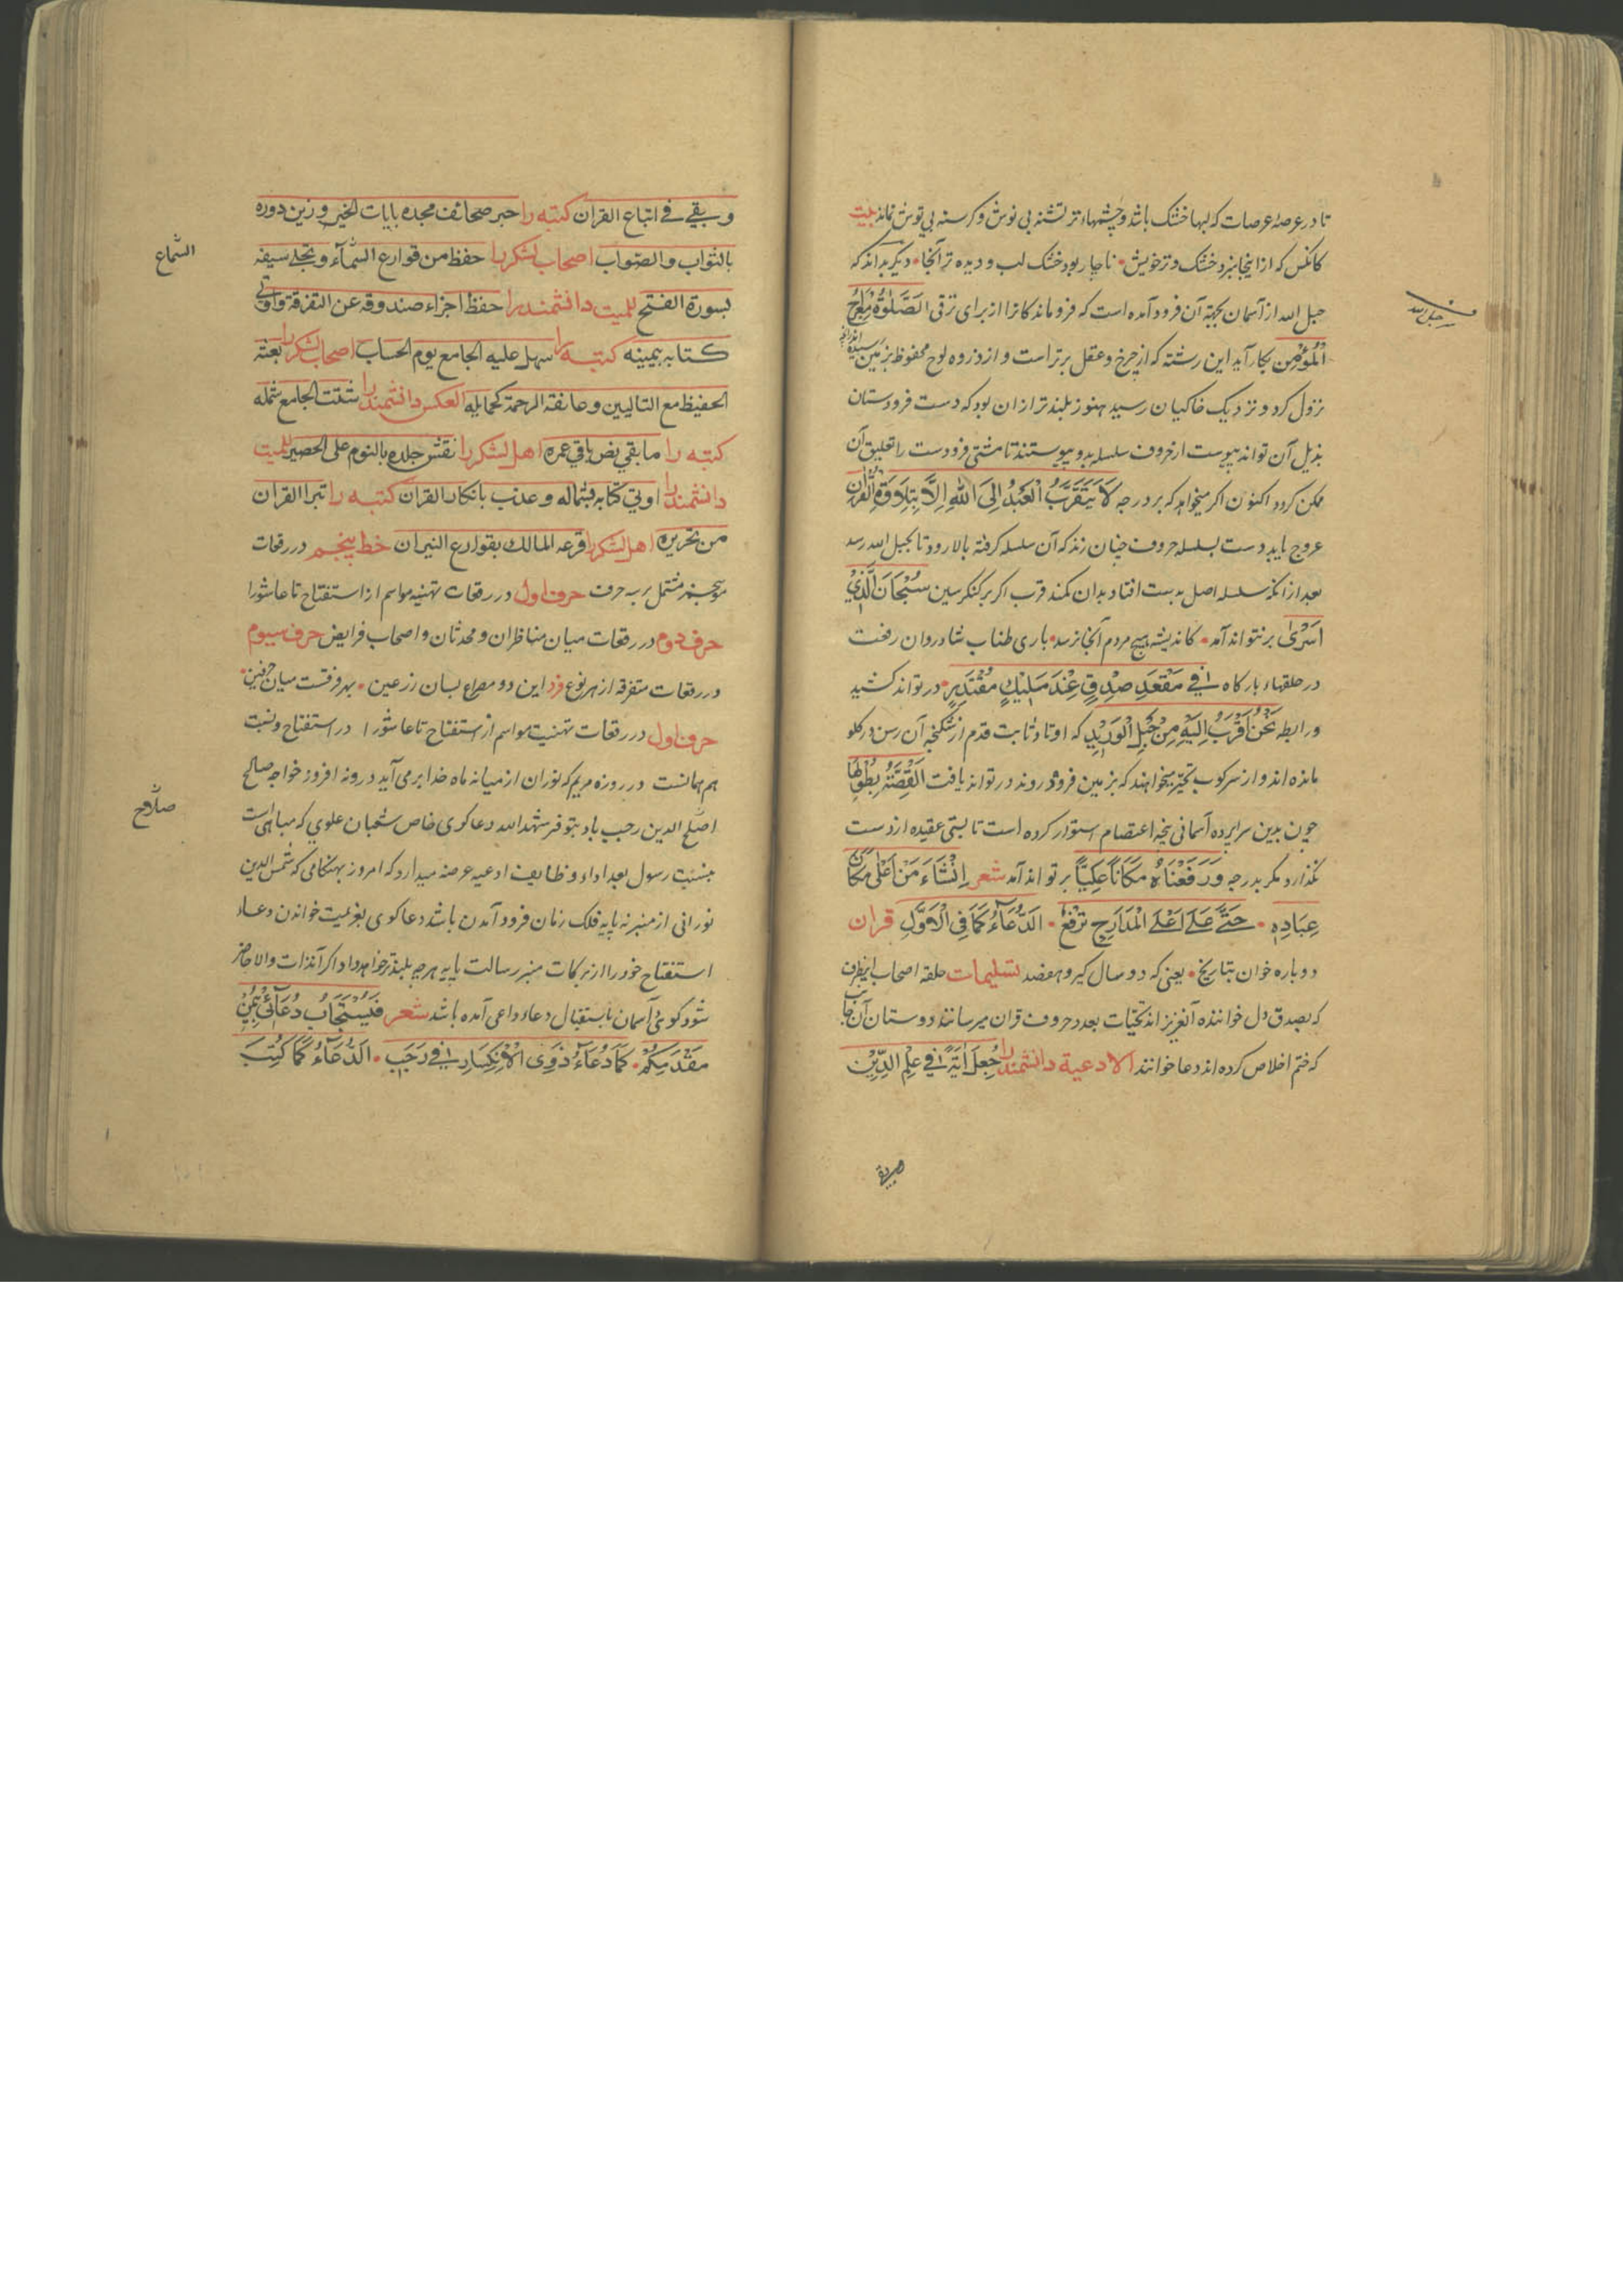 تا در عرصهٔ عرصات که لبها خشک باشد و چشمها تر تشنه بی نوش و کرسنه بی توش نماند بیت
کانکس که از اینجا نبرد خشک و تر خویش • ناچار بود خشک لب و دیده تر آنجا • دیکر بداند که
حبل الله از آسمان بجهة آن فرود آمده است که فروماندکانرا از برای ترقی اَلصَّلٰوةُ مِعْرَاجُ
اَلْمُؤْمِنِ بکار آید این رشته که از چرخ و عقل برتر است و از ذروه لوح محفوظ بزمین
نزول کرد و نزدیک خاکیان رسید هنوز بلندتر از ان بود که دست فرودستان
بذیل آن تواند پیوست از حروف سلسله بدو پیوستند تا مشتی فرودست را تعلیق آن
ممکن کردد اکنون اکر میخواهد که بر درجه لَا يَتَقَرَّبُ الْعَبْدُ اِلَى اللّٰهِ اِلَّا بِتِلَاوَةِ الْقُرْاٰنِ
عروج یابد دست بسلسله حروف چنان زند که آن سلسله کرفته بالا رود تا بحبل الله رسد
بعد از انکه سلسله اصل بدست افتاد بدان کمند قرب اکر بر کنکر سین سُبْحَانَ الَّذِيْ
اَسْرٰى بر نتواند آمد • کاندیشه هیچ مردم آنجا نرسد • باری طناب شادروان رفعت
در حلقهاء بارکاه فِيْ مَقْعَدِ صِدْقٍ عِنْدَ مَلِيْكٍ مُقْتَدِرٍ • در تواند کشید
و رابطه نَحْنُ اَقْرَبُ اِلَيْهِ مِنْ حَبْلِ الْوَرِيْدِ که اوتاد ثابت قدم از شکنجه آن رسن در کلو
مانده اند و از سرکوب تحیّر میخواهند که بزمین فرود روند در تواند یافت اَلْقِصَّةُ بِطُوْلِهَا
چون بدین سراپرده آسمانی پنجه اعتصام استوار کرده است تا پستی عقیده از دست
نکذارد مکر بدرجه وَرَفَعْنَاهُ مَكَانًا عَلِيًّا بر تواند آمد شعر اِنْ شَاءَ مَنْ اَعْلٰى مَكَانَ
عِبَادِهٖ • حَتّٰى عَلٰى اَعْلَى الْمَدَارِجِ تُرْفَعُ • اَلدُّعَاءُ كَمَا فِي الْاَوَّلِ قران
دوباره خوان بتاریخ • یعنی که دو سال کیر و هفصد تسلیمات حلقه اصحاب اینطرف
که بصدق دل خواننده آنعزیز اند تحیّات بعدد حروف قران میرسانند دوستان آن جانب
که ختم اخلاص کرده اند دعا خوانند الادعیة دانشمند را جُعِلَ اٰيَةً فِيْ عِلْمِ الدِّيْنِ
وبقي في اتباع القران کتبه را حبر صحائف مجده بایات الخير وزین دوره
بالثواب والصّواب اصحاب لشکر را حفظ من قوارع السّمآء وتجلے سیفه
السّماع
بسورة الفتح للمیت دانشمند را حفظ اجزاء صندوقه عن التفرقة واوتي
کتابه بیمینه کتبه را سهل علیه الجامع یوم الحساب اصحاب لشکر را بعثه
الحفیظ مع التالیین وعانقته الرحمة کحمایله العکس دانشمند را شتت الجامع شمله
کتبه را ما بقي بض باقي عمره اهل لشکر را نقش جلده بالنوم علی الحصیر للمیت
دانشمند را اوتي کتابه بشماله وعذب بانکار القران کتبه را تبرا القران
من تحریره اهل لشکر را قرعه المالك بقوارع النیران خط پنجم در رقعات
موجبه مشتمل بر سه حرف حرف اول در رقعات تهنیه مواسم از استفتاح تا عاشورا
حرف دوم در رقعات میان مناظران و محدثان و اصحاب فرایض حرف سیوم
در رقعات متفرقه از هر نوع فرد این دو مصراع بسان زرعین • بهر وقتست میان حرفین •
حرف اول در رقعات تهنیت مواسم از استفتاح تا عاشورا در استفتاح و نسبت
هم همانست در روزه مریم که نوران از میانه ماه خدا بر می آید درونه افروز خواجه صالح
صلاح
اصلح الدین رجب باد بتوفر شهد الله دعاکوی خاص شعبان علوي که مباهی است
بسنّت رسول بعد اداء وظایف ادعیه عرضه میدارد که امروز بهنکامی که شمس الدین
نورانی از منبر نه پایه فلک زمان فرود آمدن باشد دعاکوی بعزیمت خواندن دعاء
استفتاح خود را از برکات منبر رسالت پایه هر چه بلندتر خواهد داد اکر آنذات والا حاضر
شود کوئی آسمان باستقبال دعاء داعی آمده باشد شعر فَيُسْتَجَابُ دُعَائِيْ بِيُمْنِ
مَقْدَمِكُمْ • كَمَا دُعَاءُ ذَوِي الْاِنْكِسَارِ فِيْ رَجَبٍ • اَلدُّعَاءُ كَمَا كُتِبَ